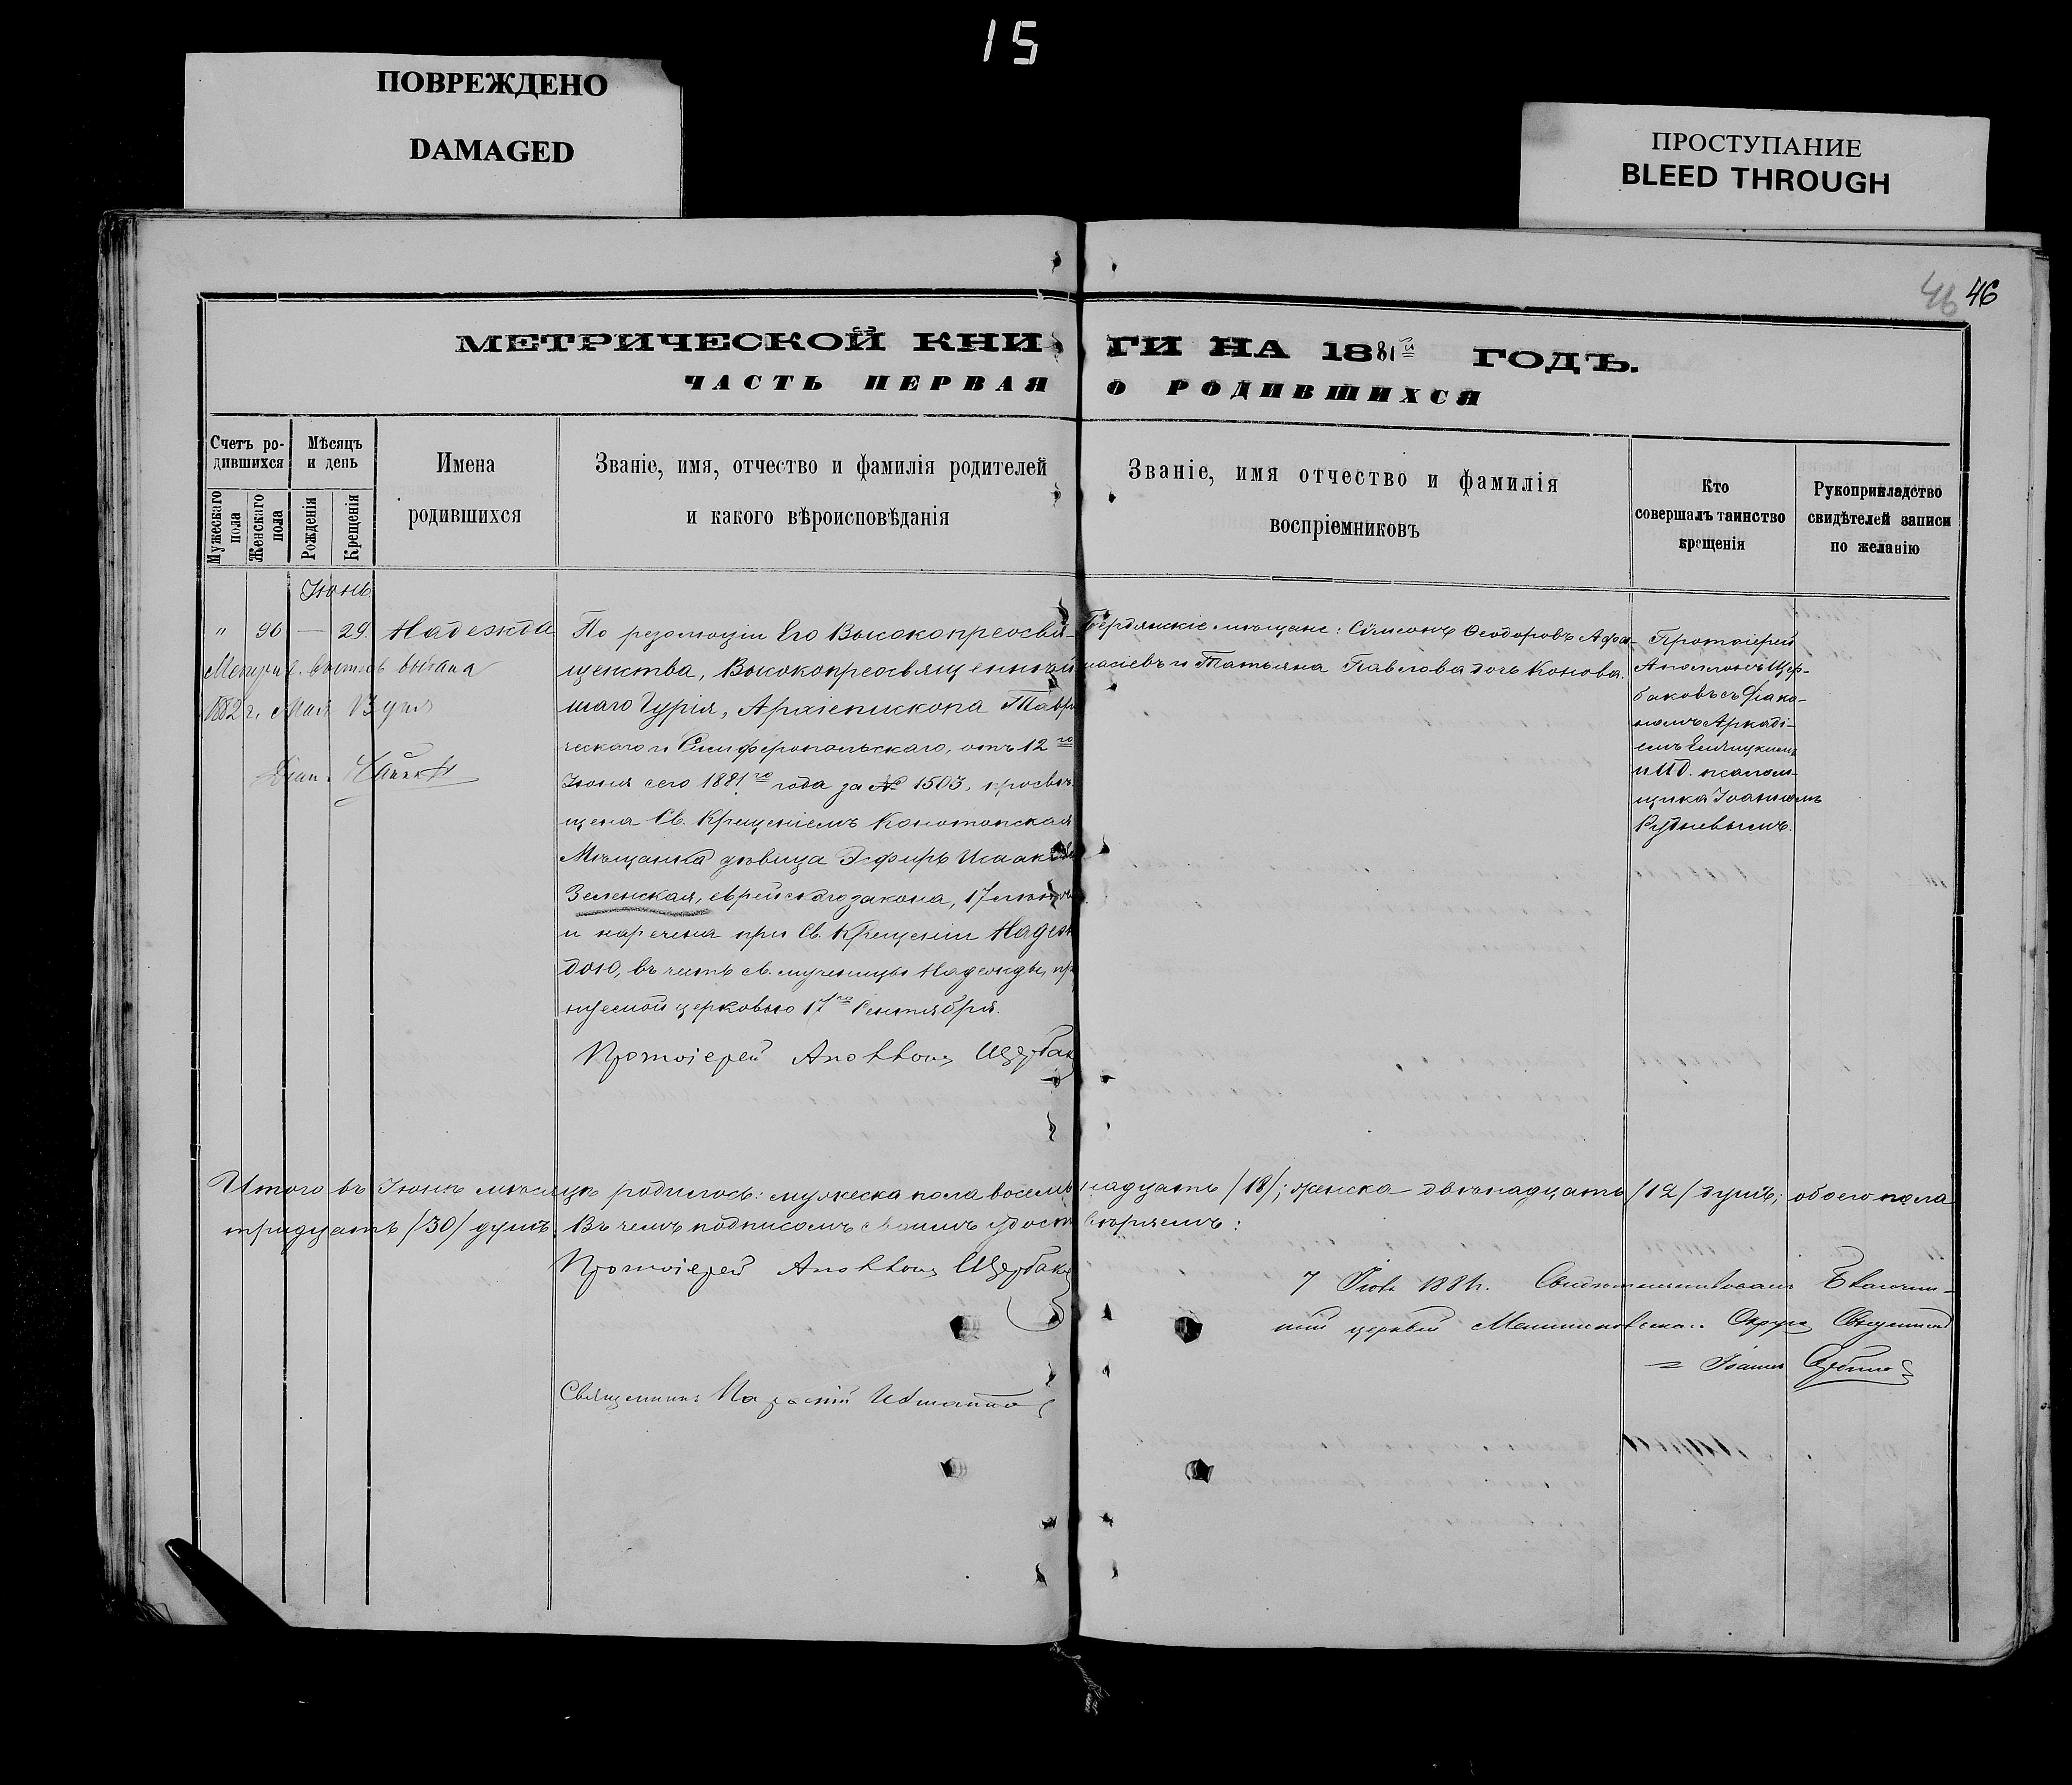 15
ПОВРЕЖДЕНО
DAMAGED
ПРОСТУПАНИЕ
BLEED THROUGH
46 46
МЕТРИЧЕСКОЙ КНИГИ НА 1881й ГОДЪ.
ЧАСТЬ ПЕРВАЯ О РОДИВШИХСЯ
Счетъ ро-
дившихся
Мужескаго пола
Женскаго пола
Мѣсяцъ
и день
Рожденія
Крещенія
Имена
родившихся
Званіе, имя, отчество и фамилія родителей
и какого вѣроисповѣданія
Званіе, имя отчество и фамилія
воспріемниковъ
Кто
совершалъ таинство
крещенія
Рукоприкладство
свидѣтелей записи
по желанію
Іюнь.
" 96 — 29. Надежда
Метрич. выпись выдана
1882 г. Мая 13 дня
Діак.
По резолюціи Его Высокопреосвя-
щенства, Высокопреосвященнѣй
шаго Гурія, Архіепископа Таври
ческаго и Симферопольскаго, отъ 12го
Іюня сего 1881го года за № 1503, просвѣ-
щена Св. Крещеніемъ Конотопская
Мѣщанка дѣвица Эсфирь Исаакова
Зеленская, еврейскаго закона, 17 лѣтъ
и наречена при Св. Крещеніи Надеж
дою, въ честь св. мученицы Надежды, пр
нуемой церковью 17го Сентября.
Протоіерей Аполлонъ Щербак
Бердянскіе мѣщане: Сѵмеонъ Ѳеодоровъ Афа-
насіевъ и Татьяна Павлова дочь Конова.
Протоіерей
Аполлонъ Щер-
баковъ съ Діако-
номъ Аркаді-
емъ
и И.д. псаломщика Іоанномъ
Рудневымъ.
Итого въ Іюнѣ мѣсяцѣ родилось: мужеска пола восемнадцать /18/; женска двѣнадцать /12/ душъ; обоего пола
тридцать /30/ душъ. Въ чемъ подписомъ своимъ удостовѣряемъ:
Протоіерей Аполлонъ Щербаковъ
7 Іюля 1881 г. Свидѣтельствовалъ Благочин-
ный церквей Округа Священникъ
Іоаннъ
Священникъ